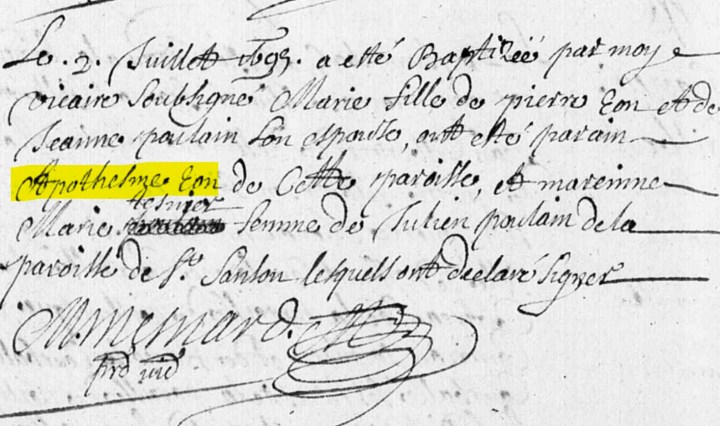 Le . 2. Juillet 1695. a esté Baptizéé par moy
vicaire soubsigné Marie fille de pierre Eon et de
Jeanne poulain son espouse, ont esté parain
Apothesme Eon de Cette paroisse, et mareinne
Marie femme de Julien poulain de la
paroisse de St. Sanson lesquels ont declaré signer